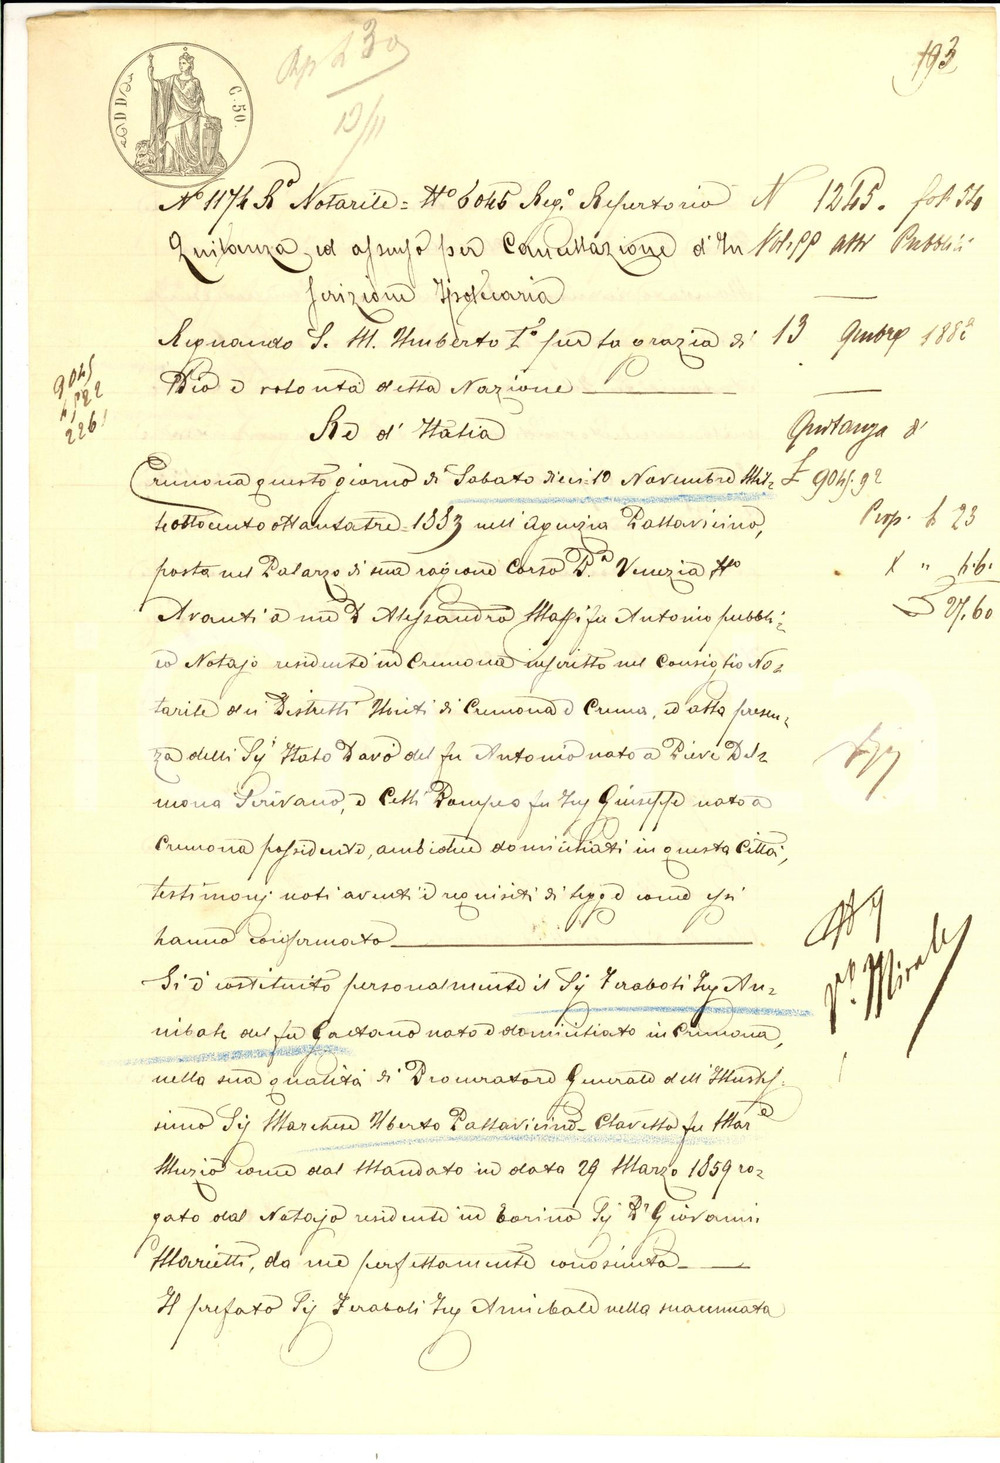 193
C. 50.
N° 1174 R° Notarile = N° 6046 Reg.° Repertorio
N 1245. fol 54
Quitanza ed assenso per Cancellazione d'In
Vol. 99 atti Pubblici
scrizione Ipotecaria
Regnando S. M. Umberto I° per la grazia di
13 9mbre 1883
Dio e volontà della Nazione
9045
4522
226
Re d'Italia
Quitanza di
Cremona questo giorno di Sabato dieci = 10 Novembre Mil=
£ 9045.92
leottocentoottantatre = 1883 nell'Agenzia Pallavicino,
Prop. £ 23
posta nel Palazzo di sua ragione Corso P.a Venezia N°
X " 4.60
£ 27.60
Avanti a me D Alessandro Massi fu Antonio pubbli=
co Notajo residente in Cremona inscritto nel Consiglio No=
tarile dei Distretti Uniti di Cremona e Crema, ed alla presen=
za delli Sig.i Italo Davò del fu Antonio nato a Pieve Del=
mona Scrivano, e Celli Pompeo fu Ing Giuseppe nato a
Cremona possidente, ambidue domiciliati in questa Città,
testimonj noti aventi i requisiti di legge come essi
hanno confermato
Si è costituito personalmente il Sig Feraboli Ing An=
nibale del fu Gaetano nato e domiciliato in Cremona,
nella sua qualità di Procuratore Generale dell'Illustris=
simo Sig Marchese Uberto Pallavicino-Clavello fu Mar.e
Muzio come dal Mandato in data 29 Marzo 1859 ro=
gato dal Notajo residente in Torino Sig D.r Giovanni
Marietti, da me perfettamente conosciuto
Il prefato Sig Feraboli Ing Annibale nella suacennata